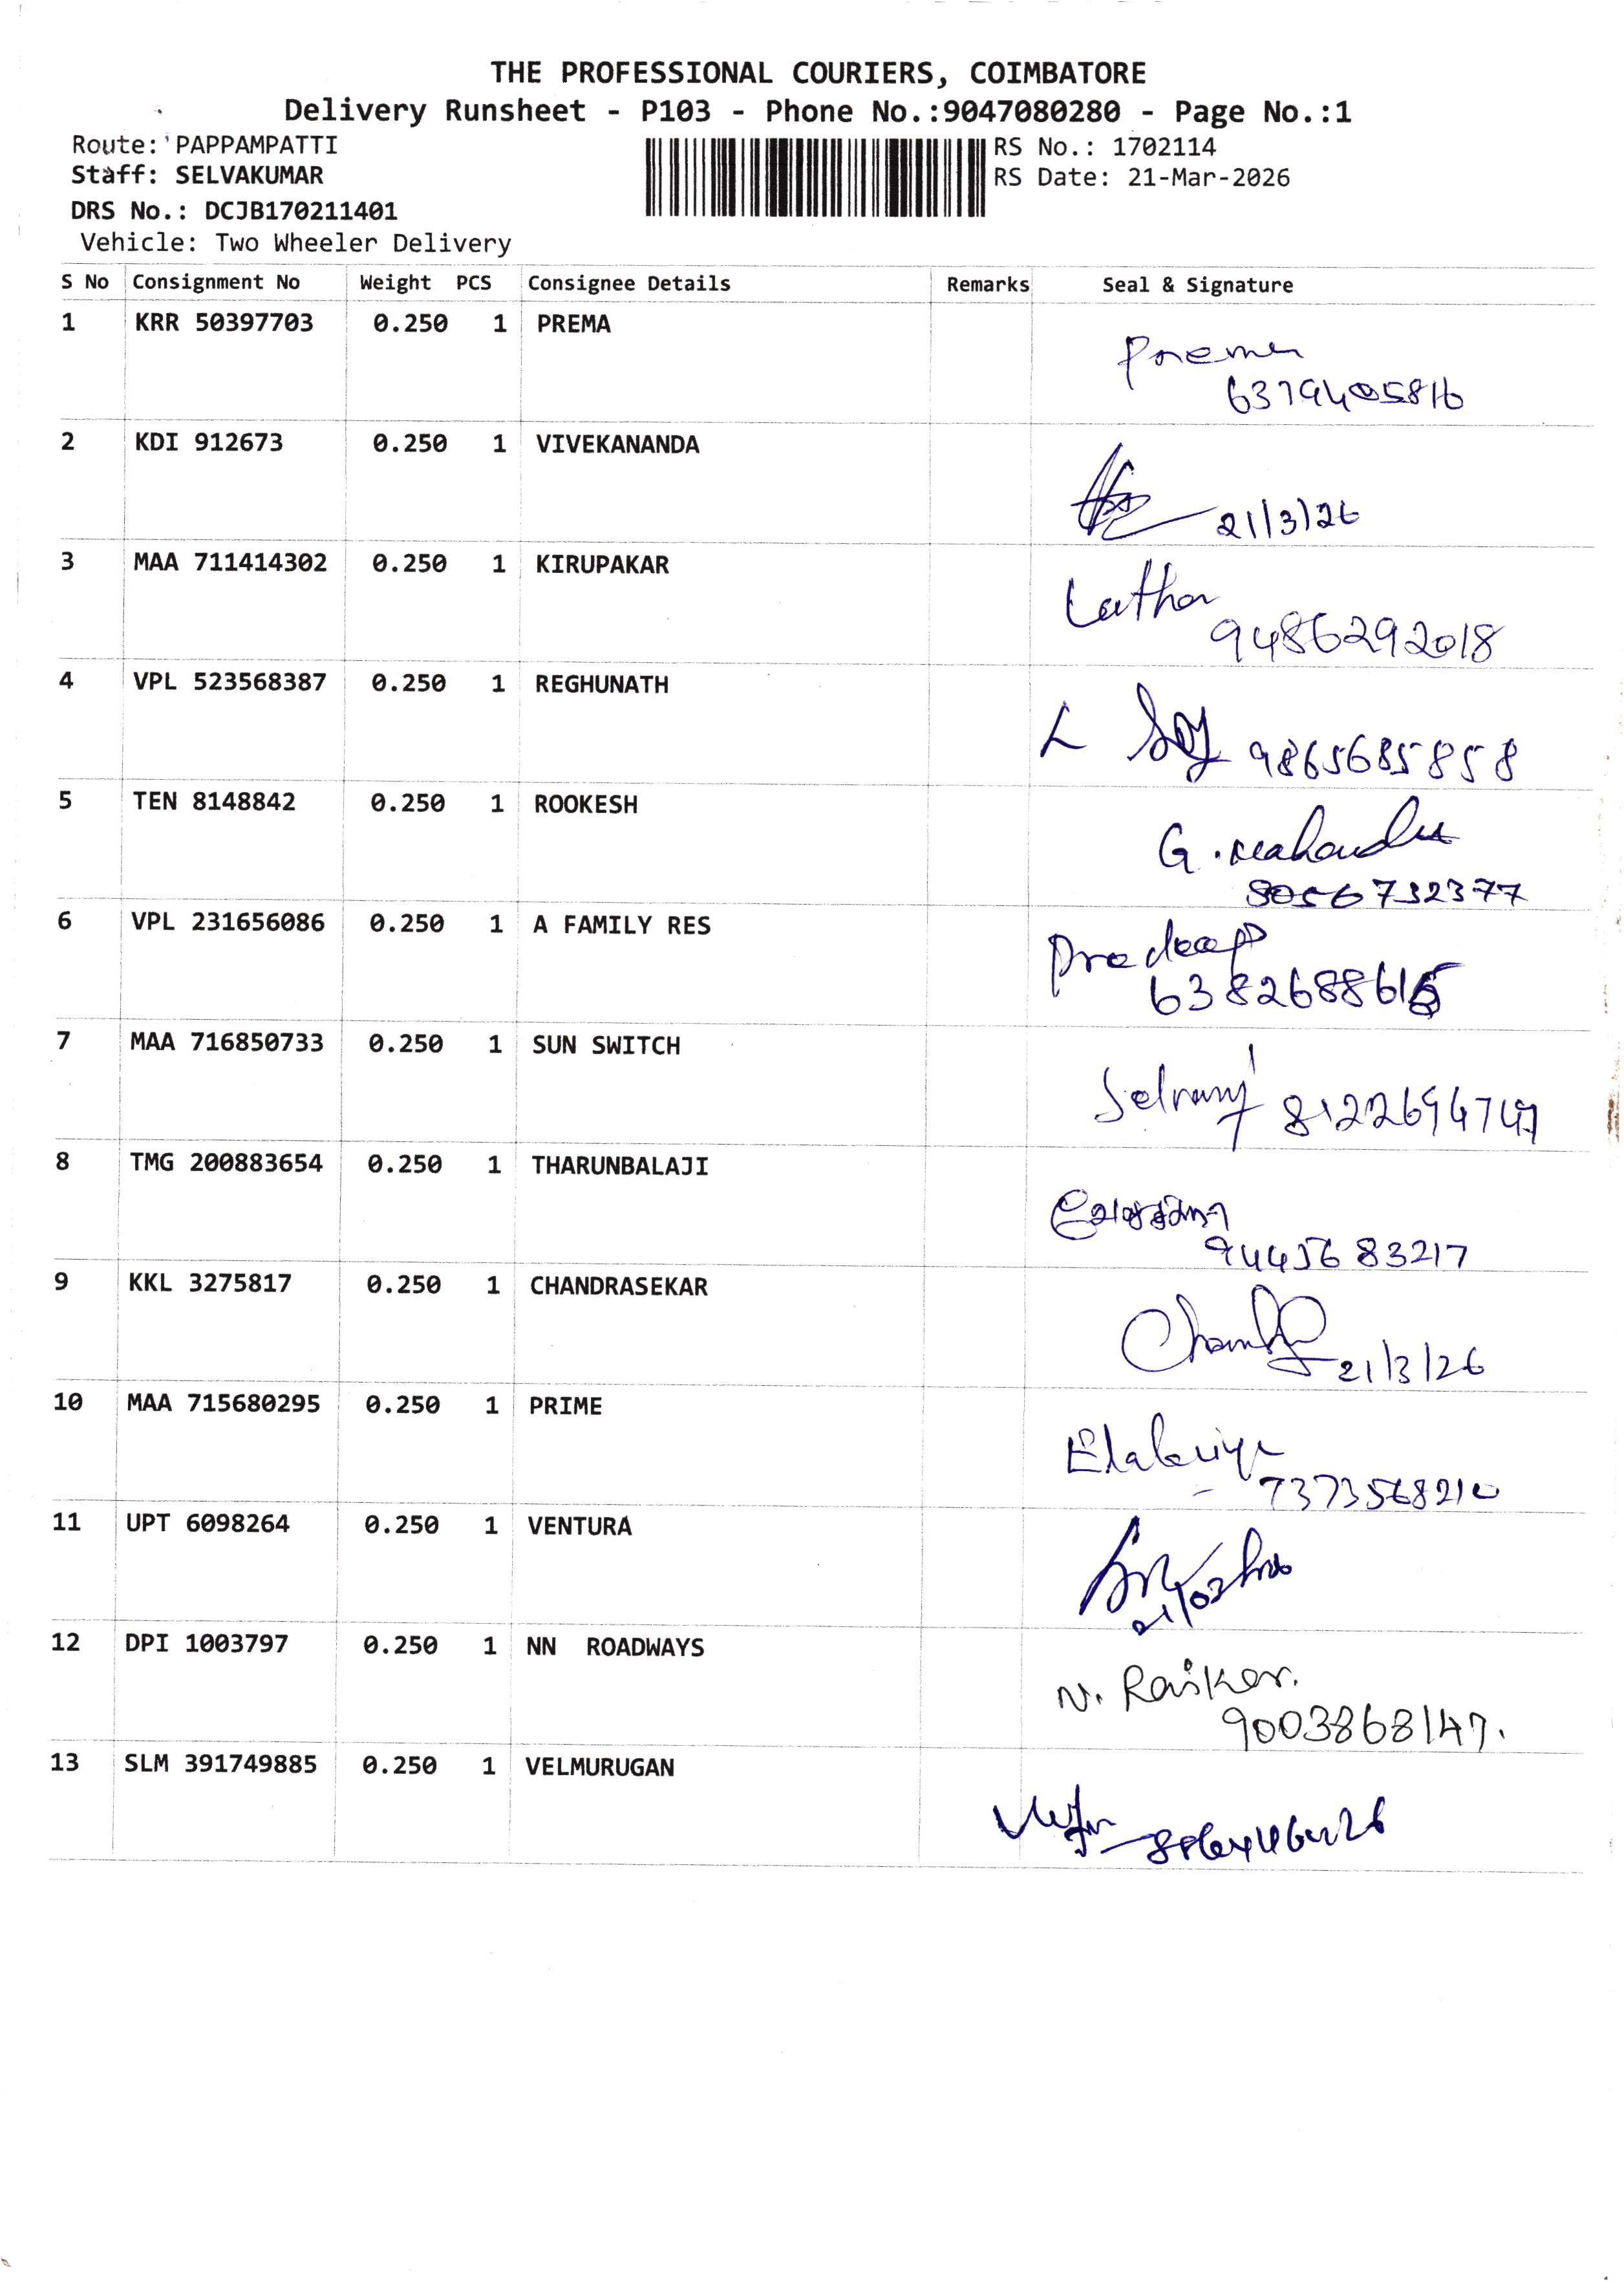 THE PROFESSIONAL COURIERS, COIMBATORE
Delivery Runsheet - P103 - Phone No.:9047080280 - Page No.:1
Route: PAPPAMPATTI
RS No.: 1702114
Staff: SELVAKUMAR
RS Date: 21-Mar-2026
DRS No.: DCJB170211401
Vehicle: Two Wheeler Delivery
S No Consignment No Weight PCS Consignee Details Remarks Seal & Signature
1 KRR 50397703 0.250 1 PREMA
Prema
6379405816
2 KDI 912673 0.250 1 VIVEKANANDA
21/3/26
3 MAA 711414302 0.250 1 KIRUPAKAR
Latha
9486292018
4 VPL 523568387 0.250 1 REGHUNATH
9865685858
5 TEN 8148842 0.250 1 ROOKESH
G.
8056732377
6 VPL 231656086 0.250 1 A FAMILY RES
Pradeep
7 MAA 716850733 0.250 1 SUN SWITCH
Selvaraj
8 TMG 200883654 0.250 1 THARUNBALAJI
9445683217
9 KKL 3275817 0.250 1 CHANDRASEKAR
21/3/26
10 MAA 715680295 0.250 1 PRIME
Elakiya
7373568210
11 UPT 6098264 0.250 1 VENTURA
12 DPI 1003797 0.250 1 NN ROADWAYS
N. Rajkar.
9003868147.
13 SLM 391749885 0.250 1 VELMURUGAN